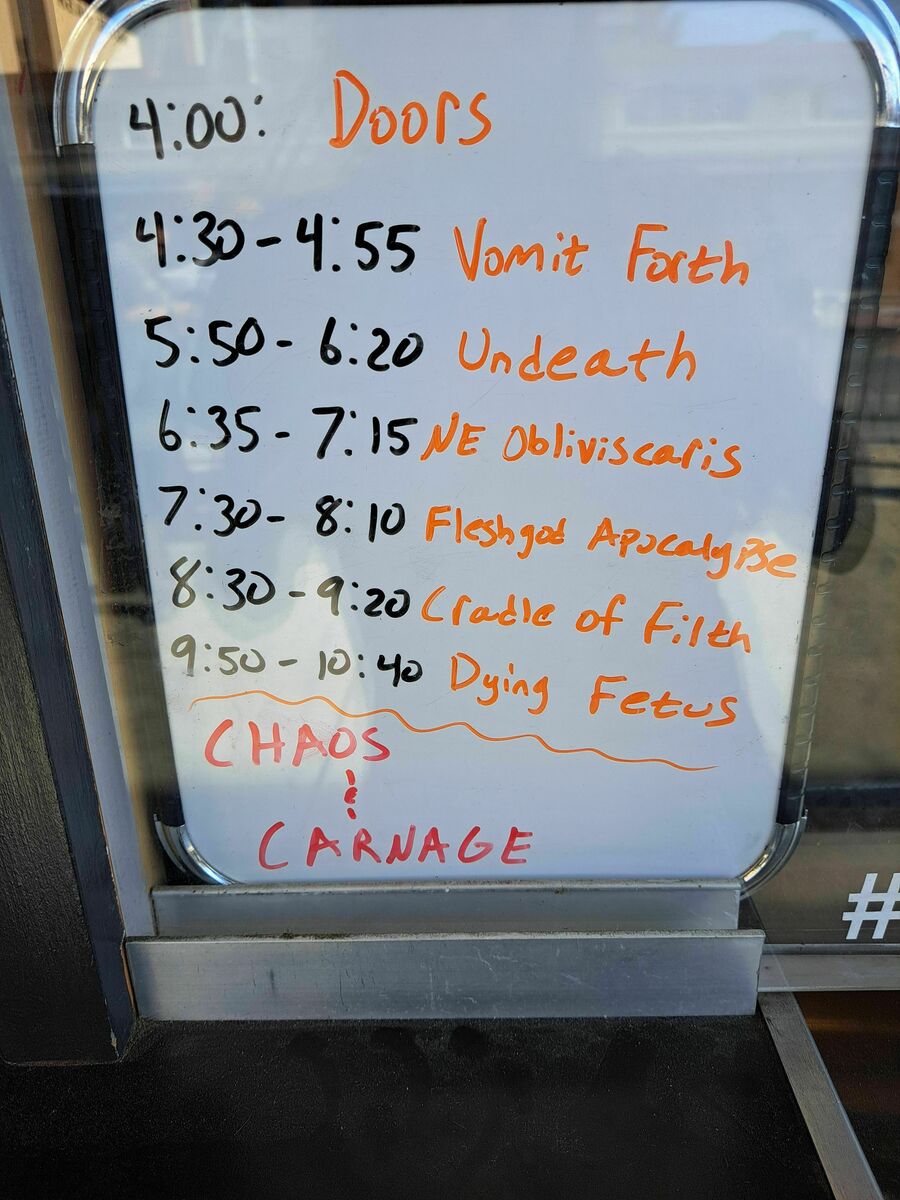 4:00: Doors
4:30-4:55 Vomit Forth
5:50-6:20 Undeath
6:35-7:15 NE Obliviscaris
7:30-8:10 Fleshgod Apocalypse
8:30-9:20 Cradle of Filth
9:50-10:40 Dying Fetus
CHAOS
&
CARNAGE
#